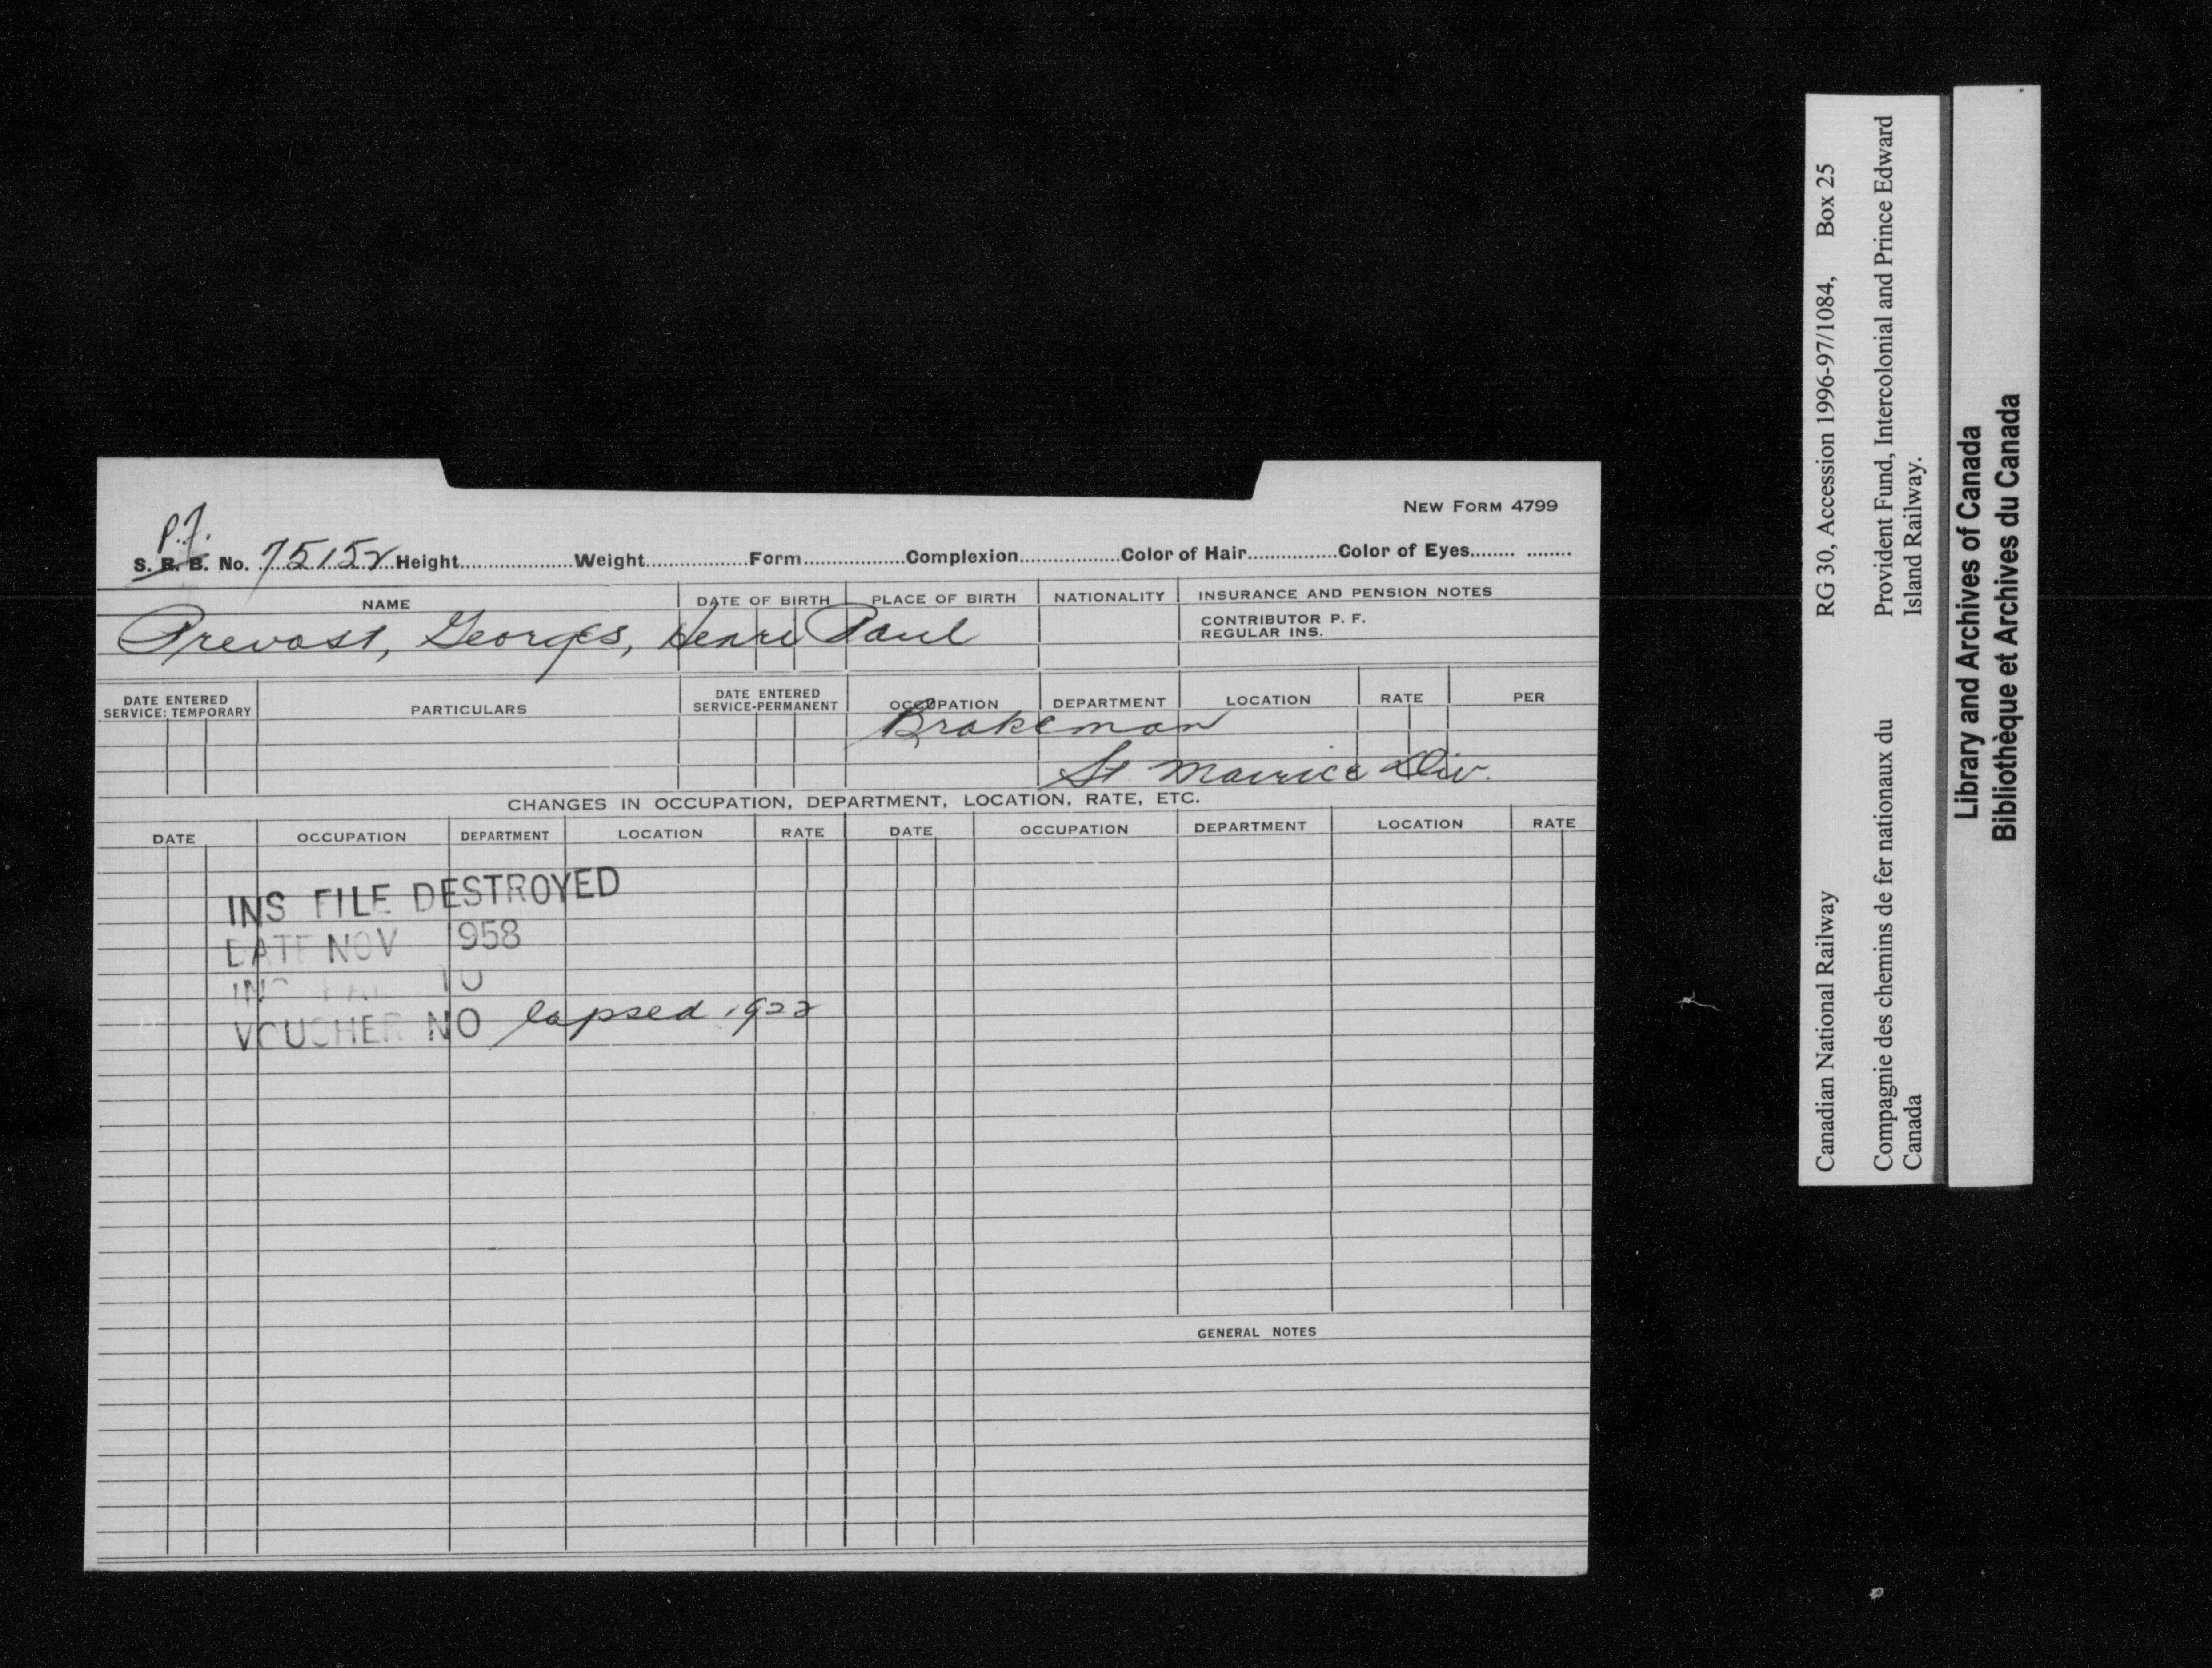 NEW FORM 4799
P.F.
S. R. B. No. 75152 Height Weight Form Complexion Color of Hair Color of Eyes
NAME DATE OF BIRTH PLACE OF BIRTH NATIONALITY INSURANCE AND PENSION NOTES
CONTRIBUTOR P. F.
REGULAR INS.
Prevost, Georges, Henri Paul
DATE ENTERED SERVICE: TEMPORARY PARTICULARS DATE ENTERED SERVICE-PERMANENT OCCUPATION DEPARTMENT LOCATION RATE PER
Brakeman
St Maurice Div.
CHANGES IN OCCUPATION, DEPARTMENT, LOCATION, RATE, ETC.
DATE OCCUPATION DEPARTMENT LOCATION RATE DATE OCCUPATION DEPARTMENT LOCATION RATE
INS FILE DESTROYED
DATE NOV 1958
VOUCHER NO lapsed 1922
GENERAL NOTES
Canadian National Railway RG 30, Accession 1996-97/1084, Box 25
Compagnie des chemins de fer nationaux du Canada
Provident Fund, Intercolonial and Prince Edward Island Railway.
Library and Archives of Canada
Bibliothèque et Archives du Canada